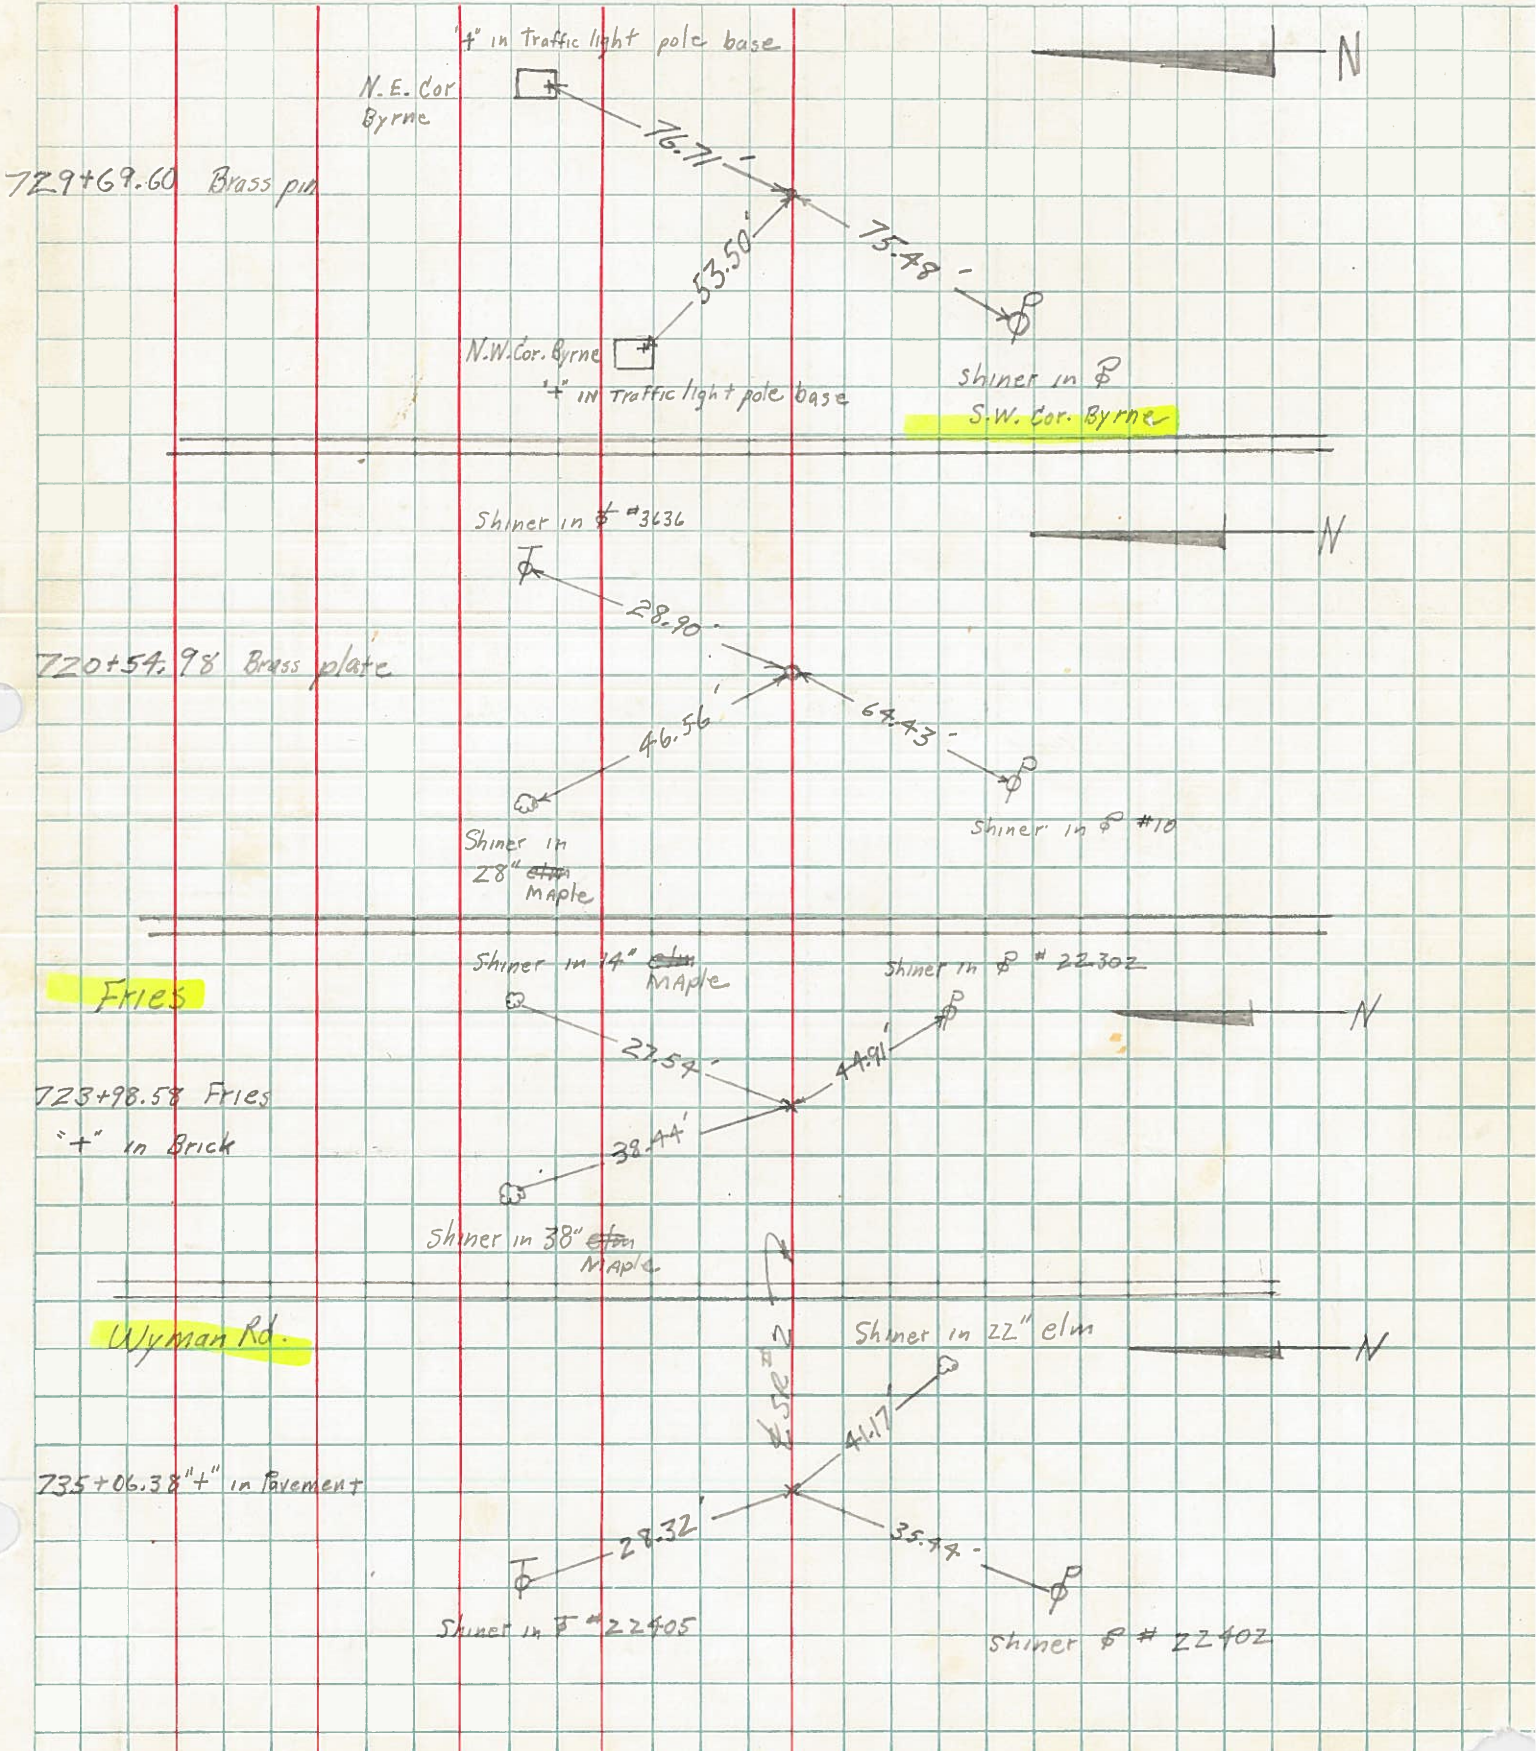 "+" in Traffic light pole base
N
N.E. Cor
Byrne
76.71'
729+69.60 Brass pin
53.50'
75.48'
N.W. Cor. Byrne
"+" IN Traffic light pole base
Shiner in
S.W. Cor. Byrne
Shiner in #3636
N
28.90'
720+54.98 Brass plate
46.56'
64.43'
Shiner in #10
Shiner in
28" elm
MAple
Shiner in 14" elm
MAple
Shiner in # 22302
Fries
N
27.54'
44.91'
723+98.58 Fries
"+" in Brick
38.44'
Shiner in 38" elm
MAple
Wyman Rd.
Shiner in 22" elm
N
SR #2
41.17'
735+06.38 "+" in Pavement
28.32'
35.44'
Shiner in #22405
Shiner # 22402